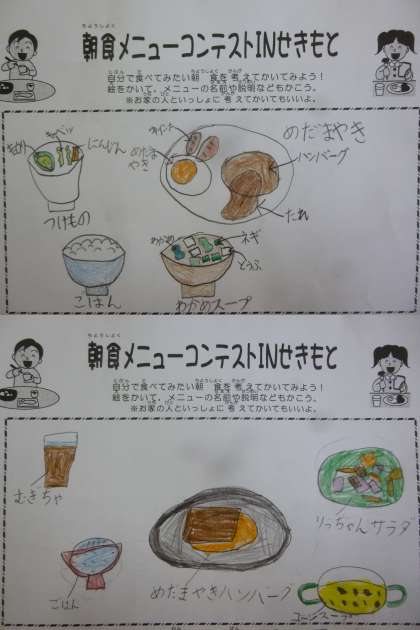 ちょうしょく
朝食メニューコンテストINせきもと
自分で食べてみたい朝食を考えてかいてみよう!
絵をかいて、メニューの名前や説明などもかこう。
※お家の人といっしょに考えてかいてもいいよ。
キャベツ
にんじん
つけもの
ウインナー
めだまやき
めだまやき
ハンバーグ
たれ
ごはん
わかめ
ネギ
とうふ
わかめスープ
ちょうしょく
朝食メニューコンテストINせきもと
自分で食べてみたい朝食を考えてかいてみよう!
絵をかいて、メニューの名前や説明などもかこう。
※お家の人といっしょに考えてかいてもいいよ。
むぎちゃ
りっちゃんサラダ
ごはん
めだまやきハンバーグ
コーンスープ